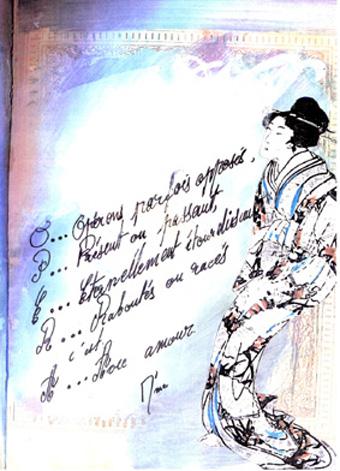 O... Opérons parfois opposés,
P... Présent ou passant,
E... Éternellement
R... Raboutés ou racés
c'est
A... amour
Mme